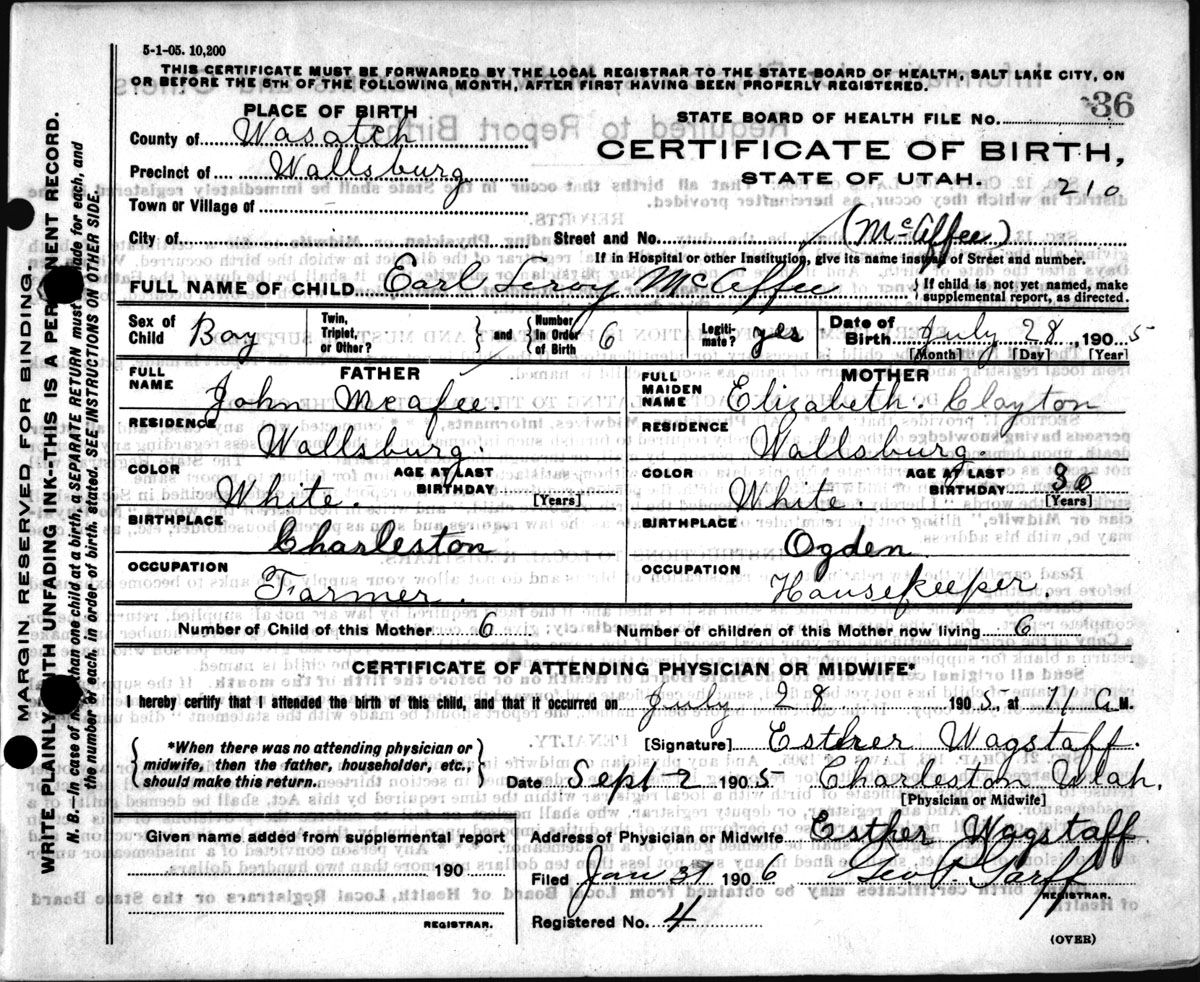 5-1-05. 10,200
THIS CERTIFICATE MUST BE FORWARDED BY THE LOCAL REGISTRAR TO THE STATE BOARD OF HEALTH, SALT LAKE CITY, ON
OR BEFORE THE 5TH OF THE FOLLOWING MONTH, AFTER FIRST HAVING BEEN PROPERLY REGISTERED.
PLACE OF BIRTH
County of Wasatch
Precinct of Wallsburg
Town or Village of
City of
STATE BOARD OF HEALTH FILE No. 36
CERTIFICATE OF BIRTH,
STATE OF UTAH.
210
Street and No. (McAffee)
If in Hospital or other Institution, give its name instead of Street and number.
FULL NAME OF CHILD Earl Leroy McAffee { If child is not yet named, make
supplemental report, as directed.
Sex of Child Boy
Twin, Triplet, or Other? } and { Number in Order of Birth 6
Legiti-mate? yes
Date of Birth July 28, 1905
[Month] [Day] [Year]
FATHER
FULL NAME John Mcafee.
RESIDENCE Wallsburg.
COLOR White.
AGE AT LAST BIRTHDAY
[Years]
BIRTHPLACE Charleston
OCCUPATION Farmer.
MOTHER
FULL MAIDEN NAME Elizabeth. Clayton
RESIDENCE Wallsburg.
COLOR White.
AGE AT LAST BIRTHDAY 30
[Years]
BIRTHPLACE Ogden.
OCCUPATION Housekeeper.
Number of Child of this Mother 6
Number of children of this Mother now living 6
CERTIFICATE OF ATTENDING PHYSICIAN OR MIDWIFE*
I hereby certify that I attended the birth of this child, and that it occurred on July 28 1905, at A M.
{ *When there was no attending physician or
midwife, then the father, householder, etc.,
should make this return. }
[Signature] Esther Wagstaff.
Date Sept 2 1905 Charleston Utah.
[Physician or Midwife]
Given name added from supplemental report
190
REGISTRAR.
Address of Physician or Midwife Esther Wagstaff
Filed Jan 31 1906 Geo P Garff
REGISTRAR.
Registered No. 4
(OVER)
MARGIN RESERVED FOR BINDING.
WRITE PLAINLY WITH UNFADING INK--THIS IS A PERMANENT RECORD.
N. B.—In case of more than one child at a birth, a SEPARATE RETURN must be made for each, and
the number of each, in order of birth, stated. SEE INSTRUCTIONS ON OTHER SIDE.